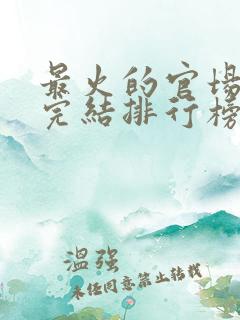 最火的官场
完结排行榜
温强
未经同意禁止转载